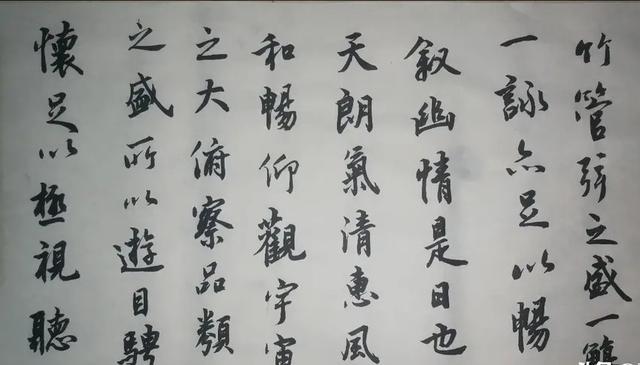 竹管弦之盛一觴
一詠亦足以暢
叙幽情是日也
天朗氣清惠風
和暢仰觀宇宙
之大俯察品類
之盛所以遊目騁
懷足以極視聽